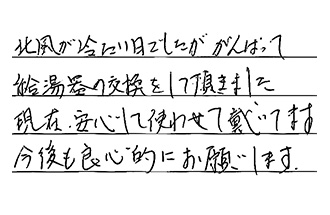 北風が冷たい日でしたが がんばって
給湯器の交換をして頂きました
現在、安心して使わせて戴いてます
今後も良心的にお願いします.